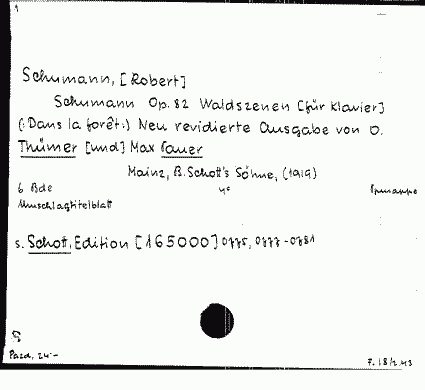 1
Schumann, [Robert]
Schumann Op. 82 Waldszenen [für Klavier]
(: Dans la forêt :) Neu revidierte Ausgabe von O.
Thümer [und] Max Pauer
Mainz, B. Schott's Söhne, (1919)
6 Bde 4° Spmappe
Umschlagtitelblatt
s. Schott, Edition [165000] 0775, 0777-0781
Pazd, 24.-
F. 18/2.43